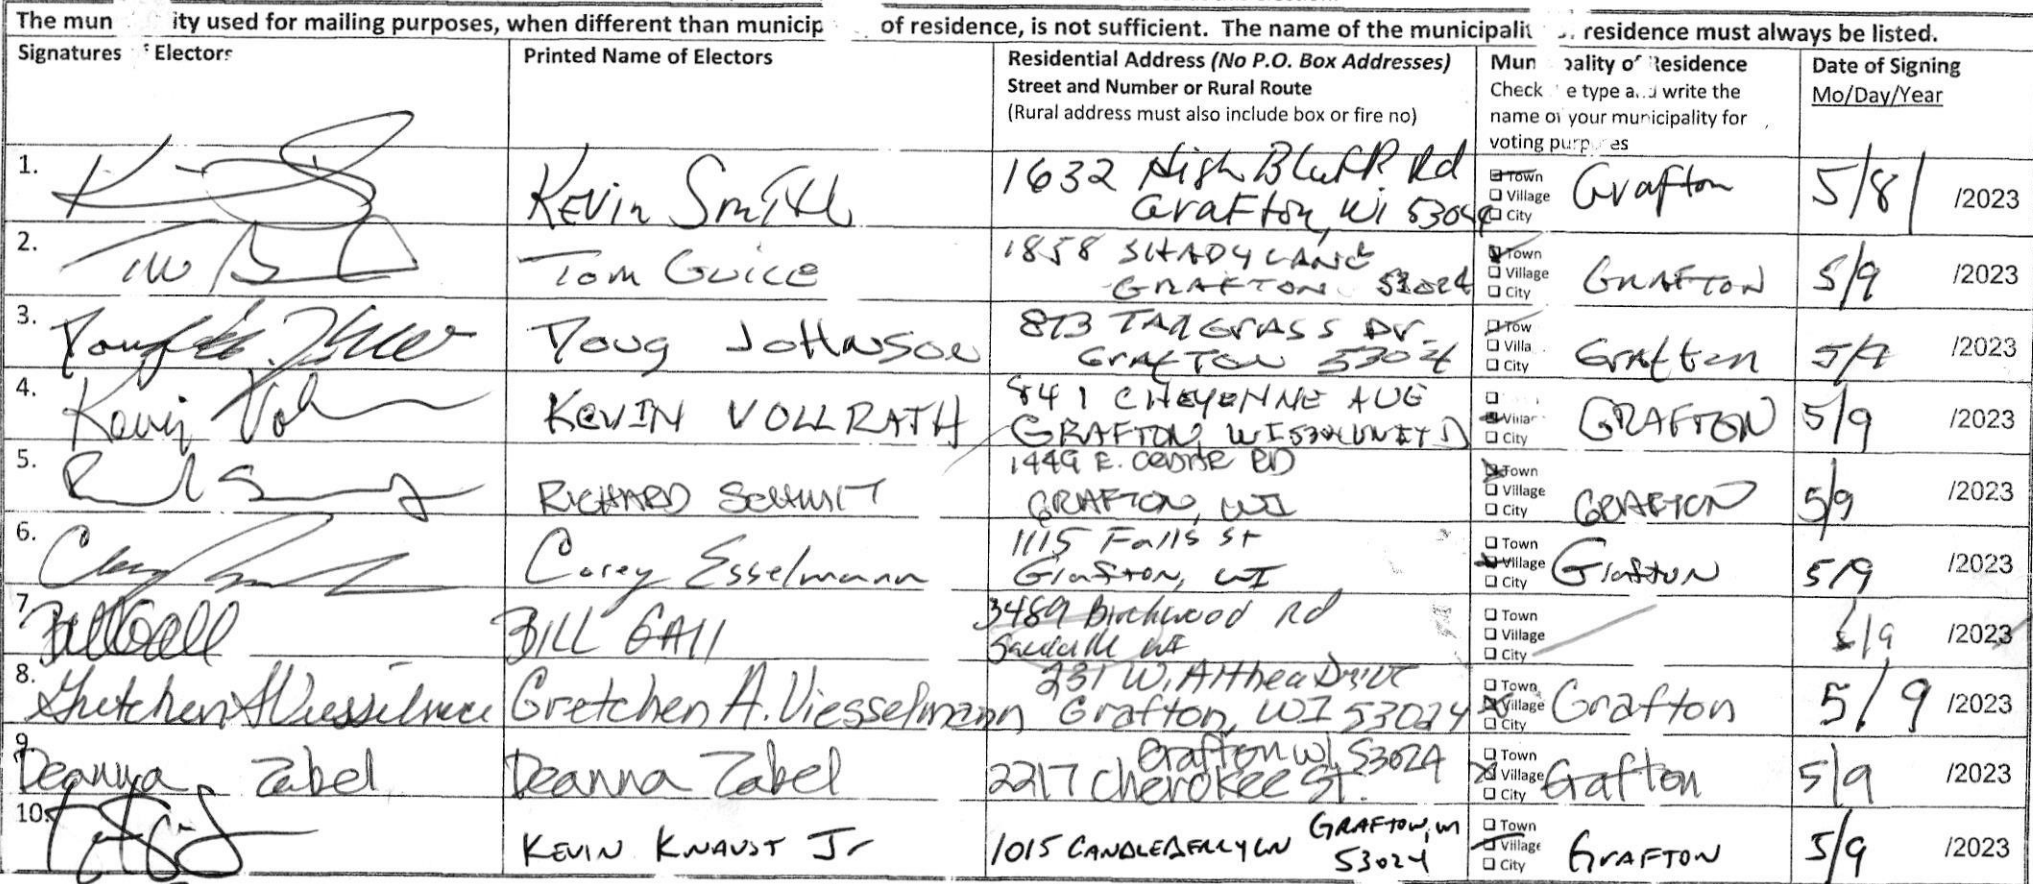 The mun ity used for mailing purposes, when different than municip of residence, is not sufficient. The name of the municipali residence must always be listed.
Signatures Electors
Printed Name of Electors
Residential Address (No P.O. Box Addresses)
Street and Number or Rural Route
(Rural address must also include box or fire no)
Mun pality of Residence
Check e type and write the
name of your municipality for
voting purp es
Date of Signing
Mo/Day/Year
1. Kevin Smith 1632 High Bluff Rd
Grafton, WI 53024
Town
Village
City
Grafton 5/8/ /2023
2. Tom Guice 1858 SHADY LANE
GRAFTON 53024
Town
Village
City
GRAFTON 5/9 /2023
3. Doug Johnson 873 TALLGRASS DR.
GRAFTON 53024
Tow
Villa
City
Grafton 5/9 /2023
4. Kevin KEVIN VOLLRATH 841 CHEYENNE AVE
GRAFTON, WI UNIT D
Villa
City
GRAFTON 5/9 /2023
5. RICHARD SCHMIT 1449 E. RD
GRAFTON, WI
Town
Village
City
GRAFTON 5/9 /2023
6. Corey Esselmann 1115 Falls St
Grafton, WI
Town
Village
City
Grafton 5/9 /2023
7. Bill Gall BILL GAll 3489 Birchwood Rd
Saukville WI
Town
Village
City
5/9 /2023
8. Gretchen A Viesselmann Gretchen A. Viesselmann 231 W. Althea Drive
Grafton, WI 53024
Town
Village
City
Grafton 5/9 /2023
9. Deanna Zabel Deanna Zabel Grafton WI 53024
2217 Cherokee St.
Town
Village
City
Grafton 5/9 /2023
10. KEVIN KNAUST Jr 1015 CANDLEBERRY LN GRAFTON, WI
53024
Town
Village
City
GRAFTON 5/9 /2023